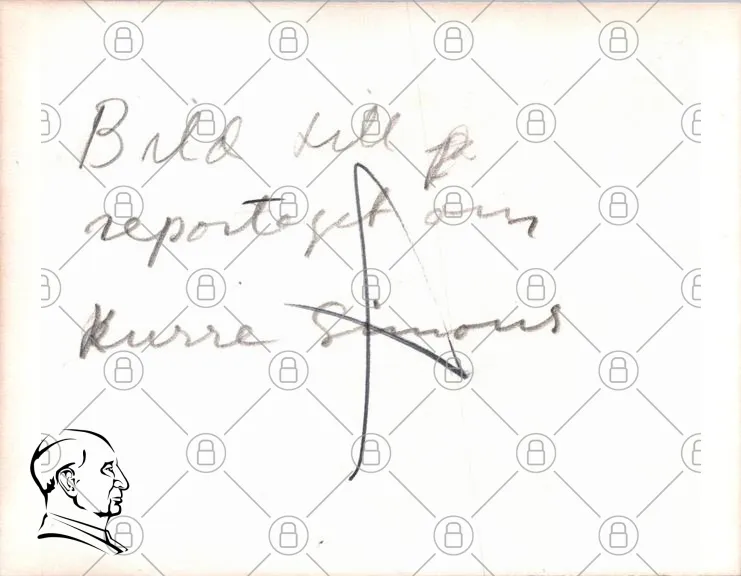 Bild till
reportaget om
Kurre Simons